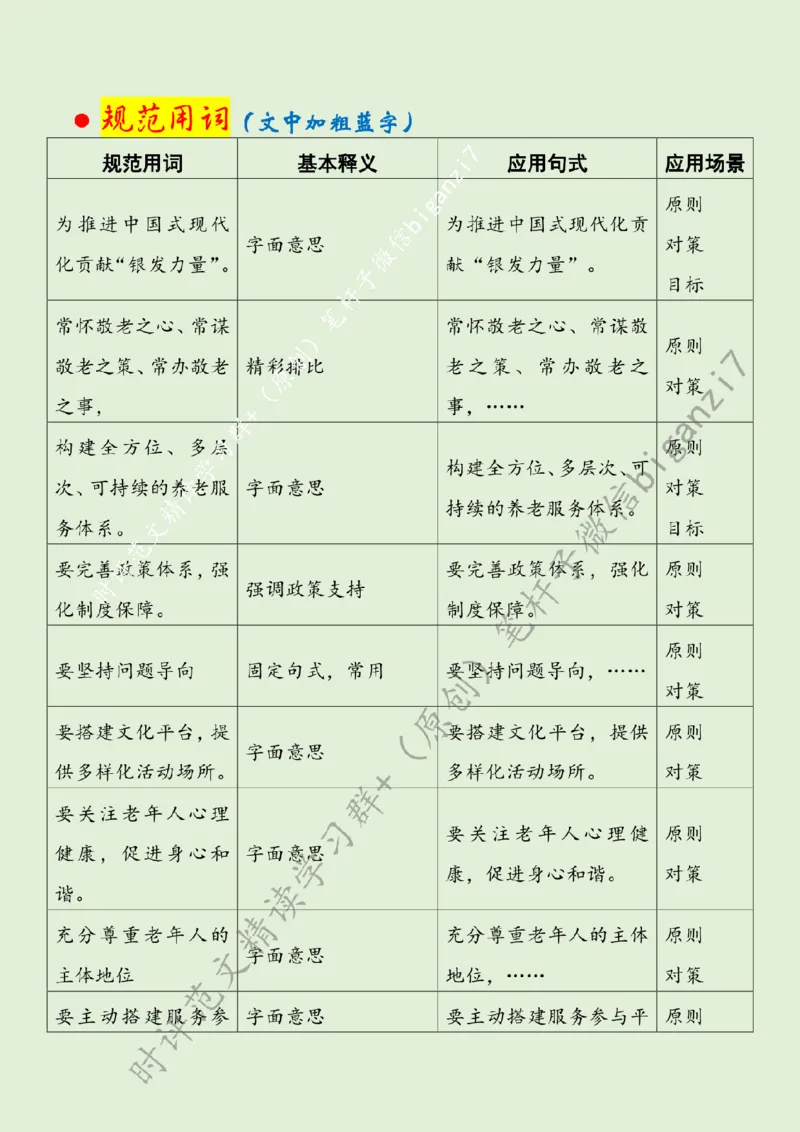 ● 规范用词（文中加粗蓝字）
规范用词 基本释义 应用句式 应用场景
为推进中国式现代
化贡献“银发力量”。
字面意思
为推进中国式现代化贡
献“银发力量”。
原则
对策
目标
常怀敬老之心、常谋
敬老之策、常办敬老
之事，
精彩排比
常怀敬老之心、常谋敬
老之策、常办敬老之
事，……
原则
对策
构建全方位、多层
次、可持续的养老服
务体系。
字面意思
构建全方位、多层次、可
持续的养老服务体系。
原则
对策
目标
要完善政策体系，强
化制度保障。
强调政策支持
要完善政策体系，强化
制度保障。
原则
对策
要坚持问题导向
固定句式，常用
要坚持问题导向，……
原则
对策
要搭建文化平台，提
供多样化活动场所。
字面意思
要搭建文化平台，提供
多样化活动场所。
原则
对策
要关注老年人心理
健康，促进身心和
谐。
字面意思
要关注老年人心理健
康，促进身心和谐。
原则
对策
充分尊重老年人的
主体地位
字面意思
充分尊重老年人的主体
地位，……
原则
对策
要主动搭建服务参
字面意思
要主动搭建服务参与平
原则
时评范文精读学习群+（原创）笔杆子微信biganzi7
时评范文精读学习群+（原创）笔杆子微信biganzi7